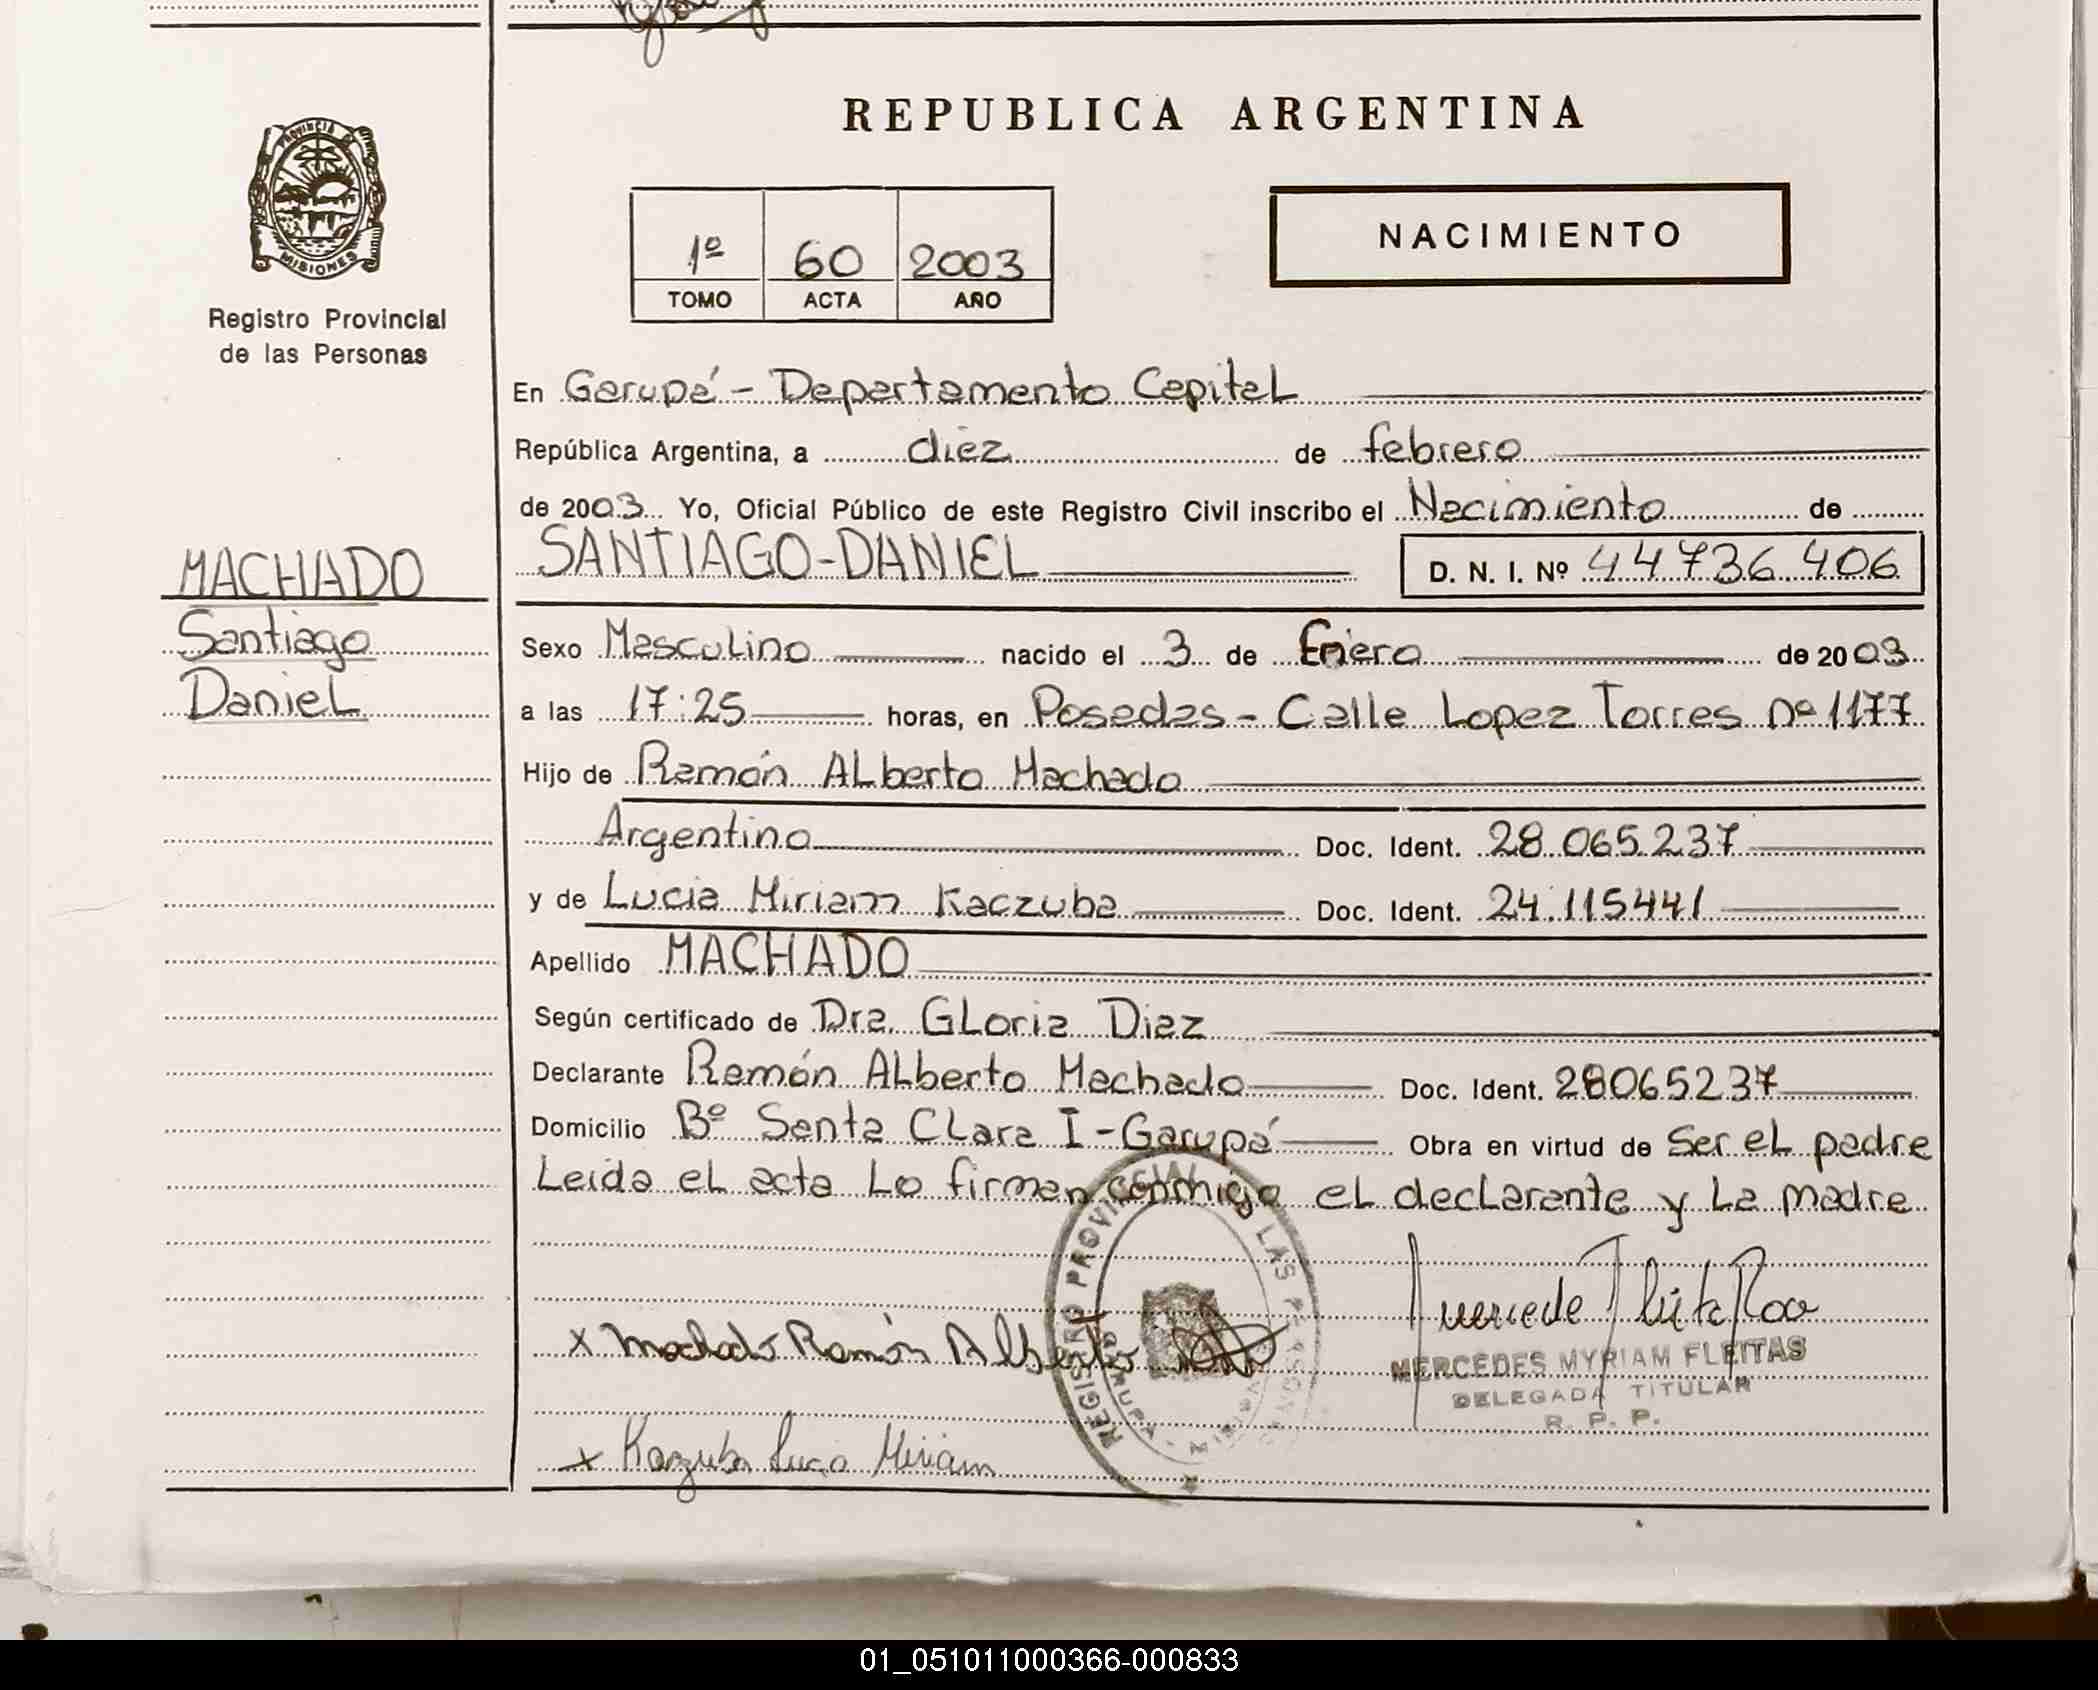 REPUBLICA ARGENTINA
PROVINCIA
MISIONES
Registro Provincial
de las Personas
1º 60 2003
TOMO ACTA AÑO
NACIMIENTO
En Garupá - Departamento Capital
República Argentina, a diez de febrero
de 2003 Yo, Oficial Público de este Registro Civil inscribo el Nacimiento de
SANTIAGO-DANIEL D. N. I. Nº 44736406
MACHADO
Santiago
Daniel
Sexo Masculino nacido el 3 de Enero de 2003
a las 17:25 horas, en Posadas - Calle Lopez Torres nº 1177
Hijo de Ramón Alberto Machado
Argentino Doc. Ident. 28.065.237
y de Lucia Miriam Kaczuba Doc. Ident. 24.115441
Apellido MACHADO
Según certificado de Dra. Gloria Diaz
Declarante Ramón Alberto Machado Doc. Ident. 28065237
Domicilio Bº Santa Clara I - Garupá Obra en virtud de Ser el padre
Leida el acta Lo firman conmigo el declarante y La madre
REGISTRO PROVINCIAL LAS PERSONAS
GARUPA - MISIONES
x Machado Ramón Alberto
MERCEDES MYRIAM FLEITAS
DELEGADA TITULAR
R. P. P.
x Kaczuba Lucia Miriam
01_051011000366-000833